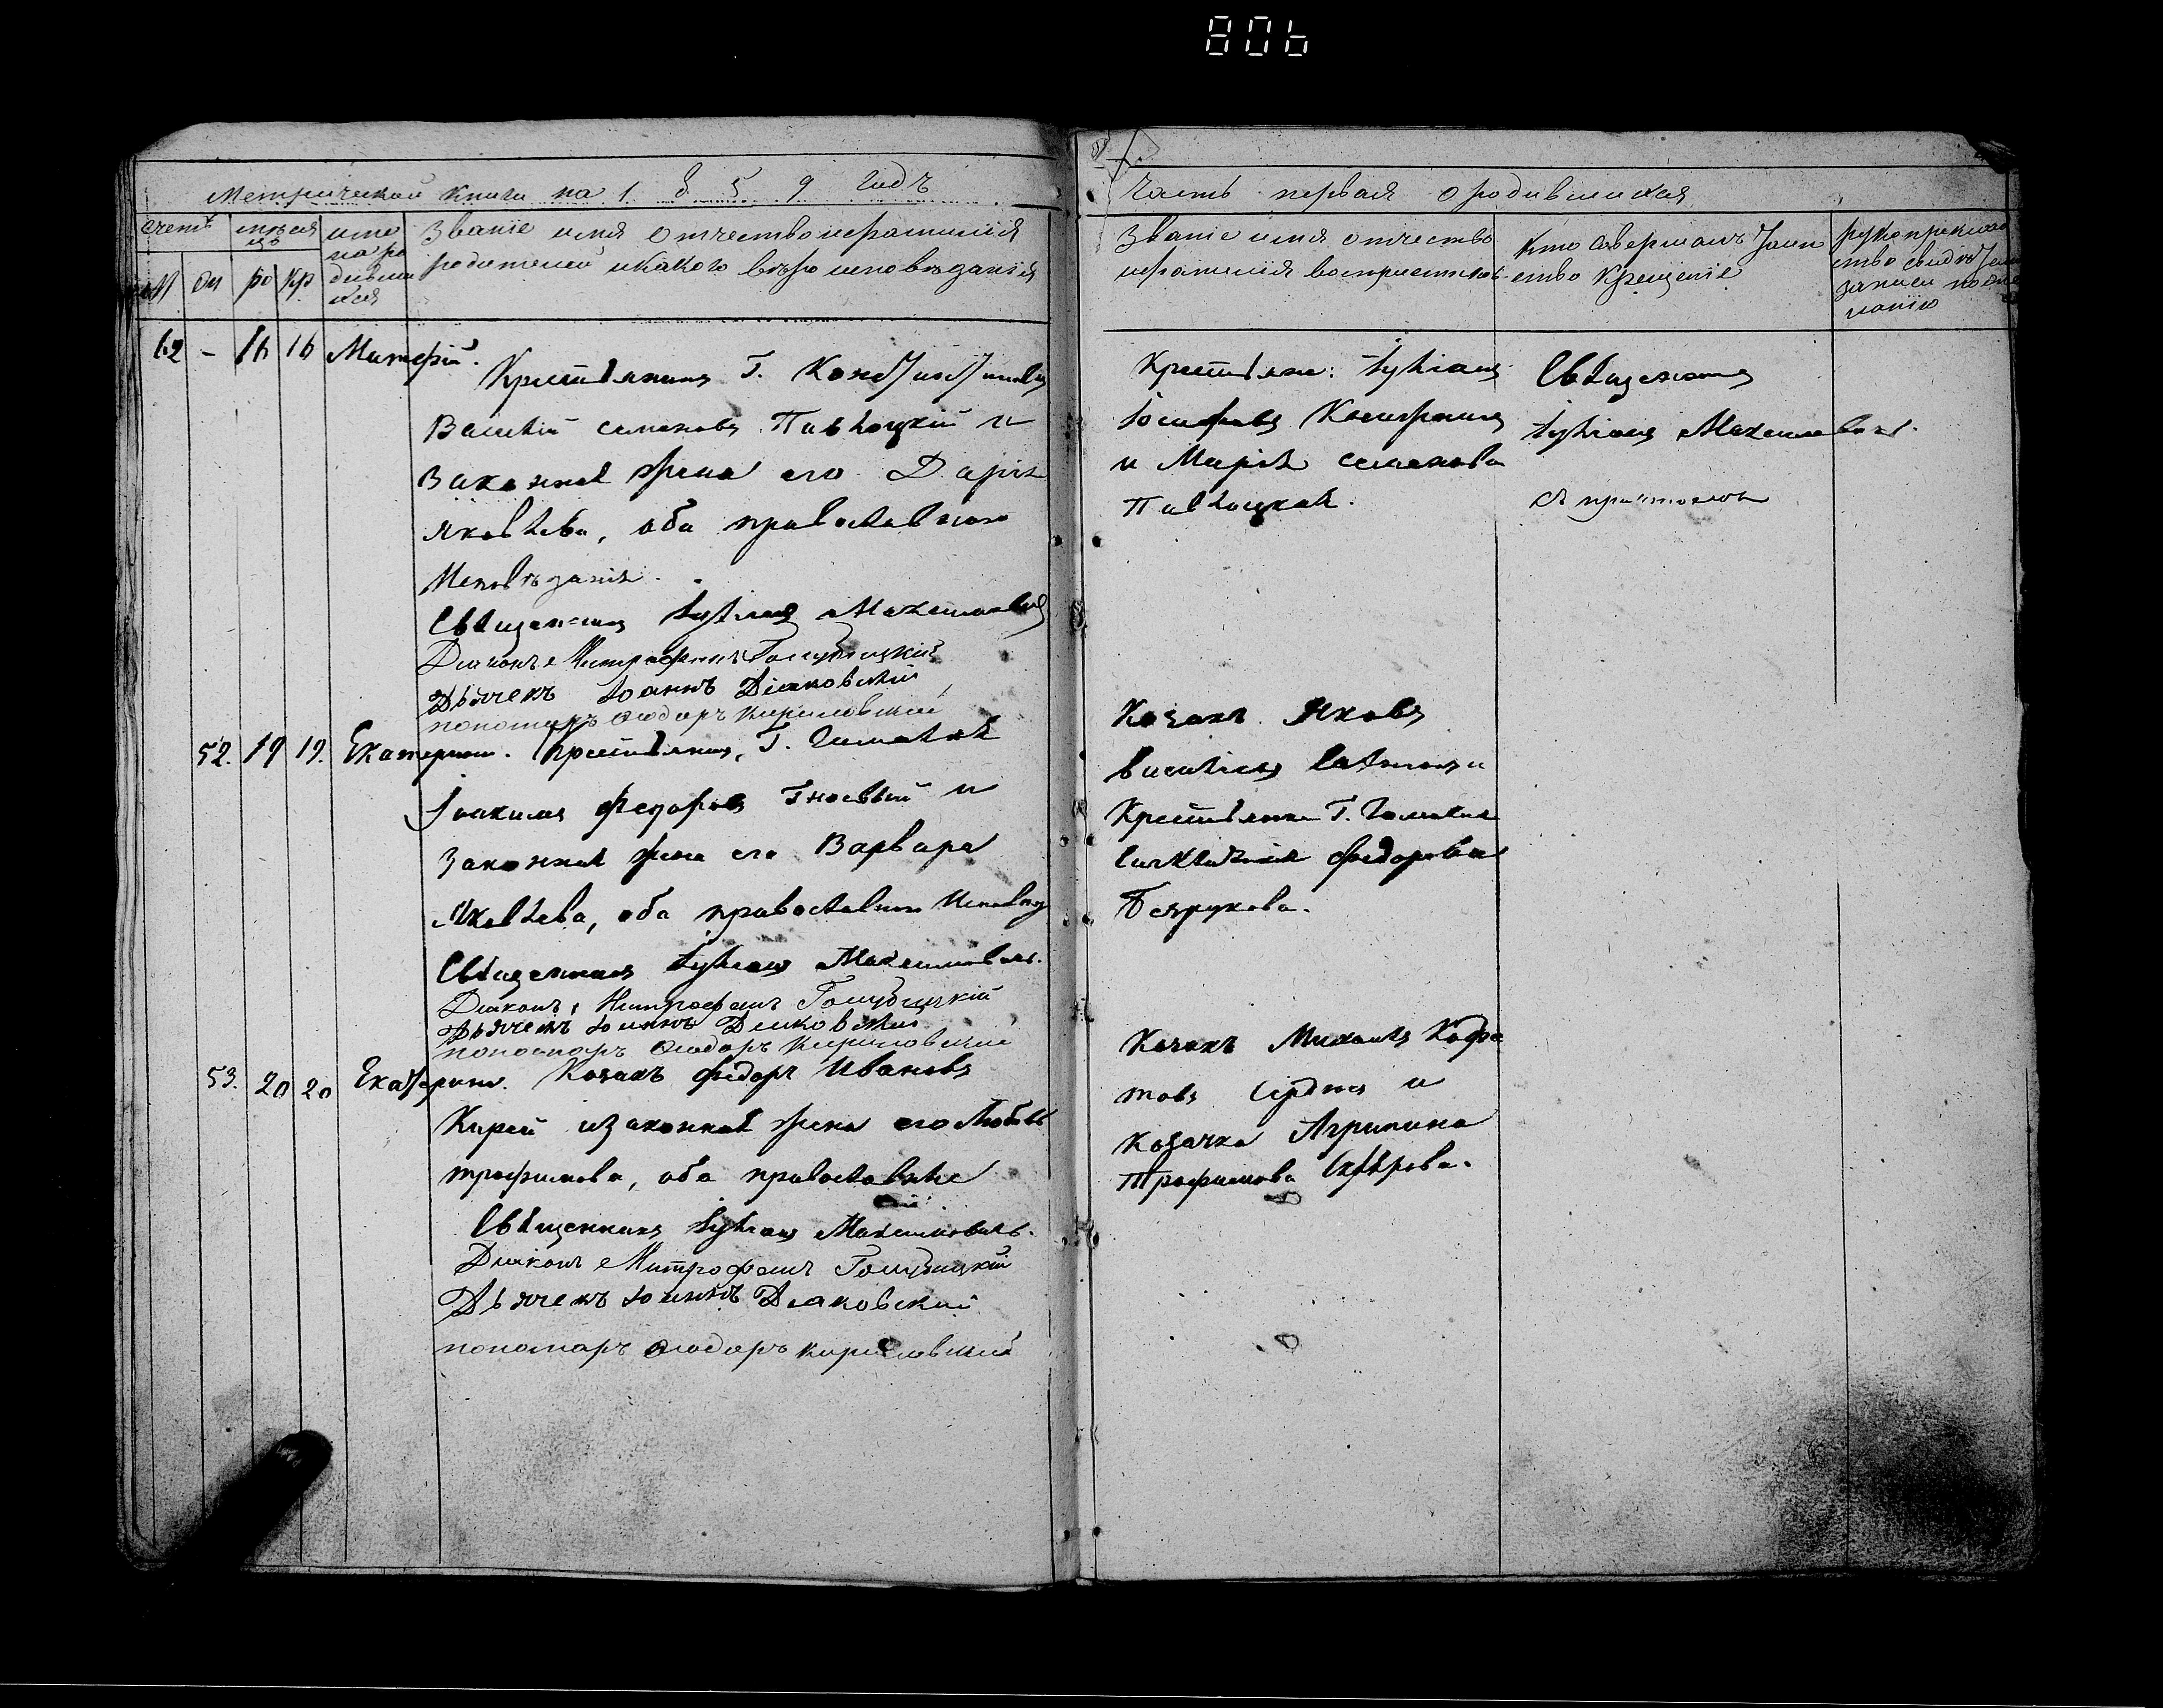 806
Метрической книги на 1 8 5 9 годъ
Часть первая о родившихся
счетъ
имя
на ро
дивши
хся
Званіе имя отчество и фамилія
родителей и какого вѣроисповѣданія
М
ро кр
Званіе имя отчество
и фамилія воспріемников
Кто совершалъ Таин
ство Крещеніе
рукоприклад
ство свидѣте
записи по же
ланію
62 - 16 16
Крестьянинъ Г.
Василій Семеновъ Павлоцкій и
Законная жена его Дарія
Яковлева, оба православнаго
Исповѣданія.
Священникъ Максимовичъ
Діаконъ Митрофанъ Голубицкій
Дьячекъ Іоаннъ Діаковскій
пономарь Ѳеодоръ Кириловскій
Крестьяне:
Іосифовъ
и Марія Семенова
Павлоцкая.
Священникъ
Максимовичъ.
съ причтомъ
52. 19 19. Екатерина. Крестьянинъ, Г.
Іоакимъ Федоровъ Гноевый и
Законная жена его Варвара
Яковлева, оба православнаго Исповѣд
Священникъ Максимовичъ.
Діаконъ Митрофанъ Голубицкій
Дьячекъ Іоаннъ Діаковскій
пономарь Ѳеодоръ Кириловскій
Козакъ Яковъ
Васильевъ и
Крестьянка Г.
Федорова
Безрукова.
53. 20 20 Екатерина. Козакъ Федоръ Ивановъ
Кирей и законная жена его Любовь
Трофимова, оба православные
Священникъ Максимовичъ.
Діаконъ Митрофанъ Голубицкій
Дьячекъ Іоаннъ Діаковскій
пономарь Ѳеодоръ Кириловскій
Козакъ Михаилъ
и
Козачка Агрипина
Трофимова